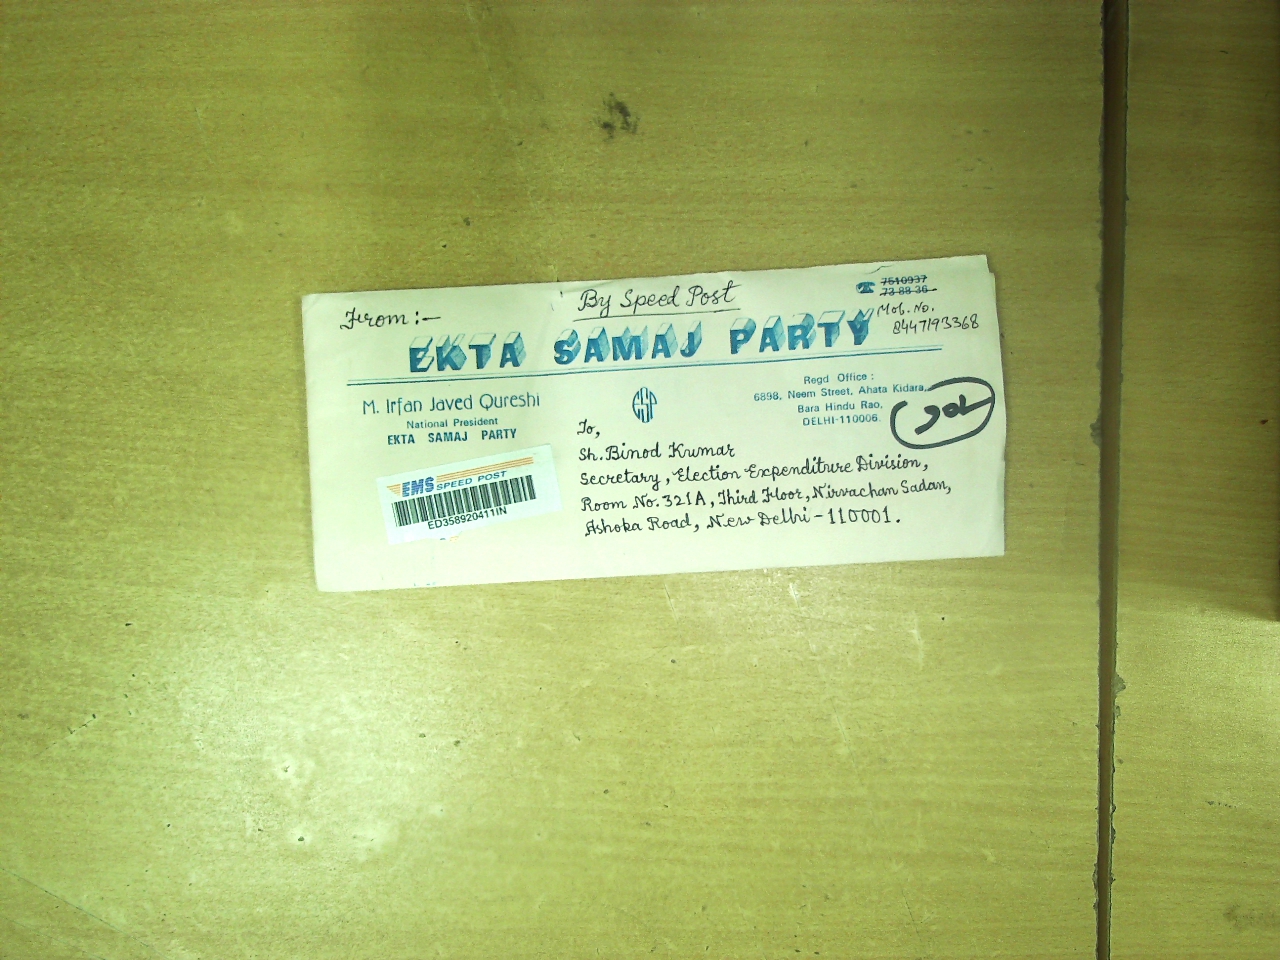 By Speed Post
From :-
7510937
73 88 36
Mob. No.
8447193368
EKTA SAMAJ PARTY
M. Irfan Javed Qureshi
National President
EKTA SAMAJ PARTY
ESP
Regd Office :
6898, Neem Street, Ahata Kidara,
Bara Hindu Rao,
DELHI-110006.
To,
Sh. Binod Kumar
Secretary, Election Expenditure Division,
Room No. 321A, Third Floor, Nirvachan Sadan,
Ashoka Road, New Delhi - 110001.
EMS SPEED POST
ED358920411IN